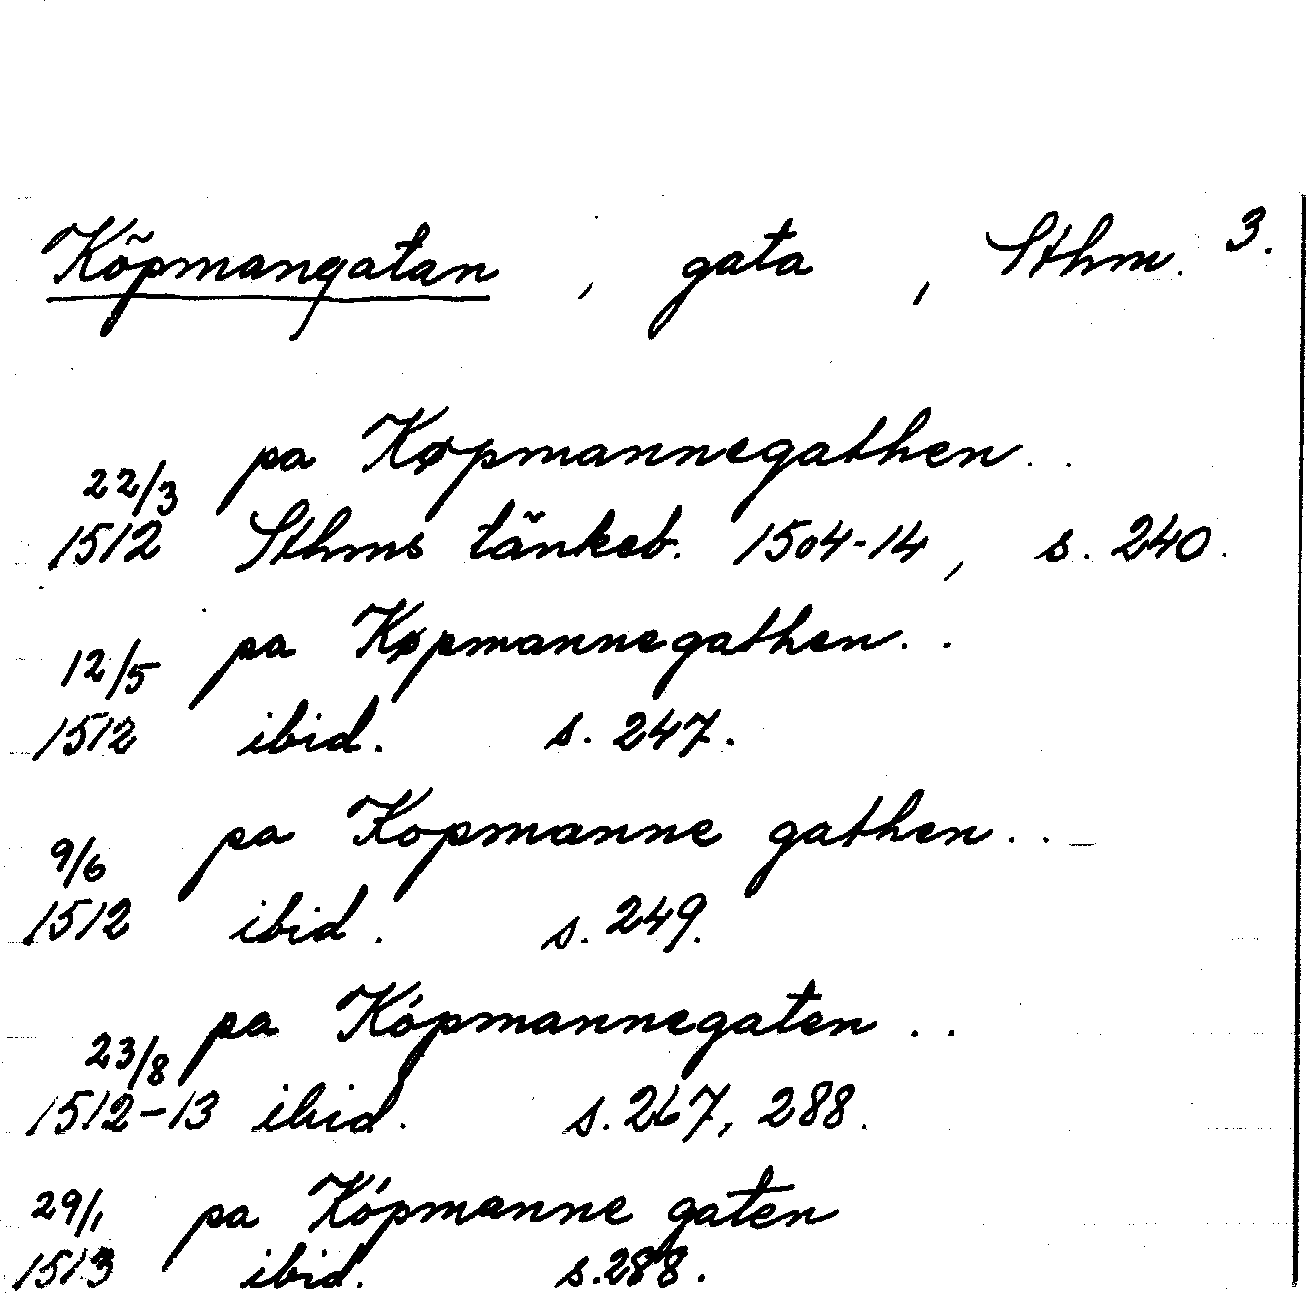 Köpmangatan, gata, Sthm. 3.
22/3 pa Køpmannegathen..
1512 Sthms tänkeb. 1504-14, s. 240.
12/5 pa Køpmannegathen..
1512 ibid. s. 247.
9/6 pa Kopmanne gathen..
1512 ibid. s. 249.
23/8 pa Kópmannegaten..
1512-13 ibid. s. 267, 288.
29/1 pa Kópmanne gaten
1513 ibid. s. 288.